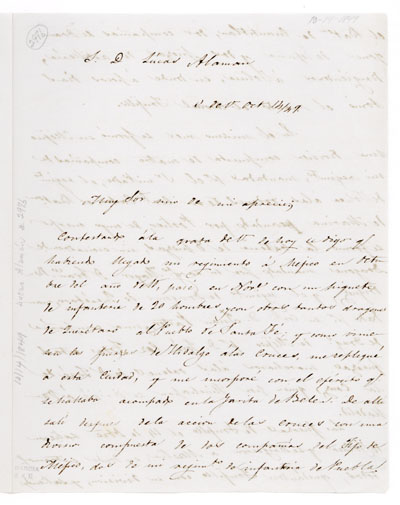 S. D. Lucas Alaman
Oct 14/49
Muy Sor mio de mi aprecio;
Contestando á la grata de V. de hoy le digo q.e
habiendo llegado mi regimiento á Mejico en Octu
bre del año de 10, pasé en Nov.e con un piquete
de infanteria de 20 hombres y con otros tantos dragones
de Querétaro al Pueblo de Santa Fé, y como
las fuerzas de Hidalgo a las Cruces, me repleque
a esta Ciudad, y me incorporé con el ejercito q.e
se hallaba acampado en la Garita de Belen. De alli
sali despues de la accion de las Cruces con una
divicion compuesta de dos compañias del Fijo de
Mejico, dos de mi regim.to de infanteria de Puebla,